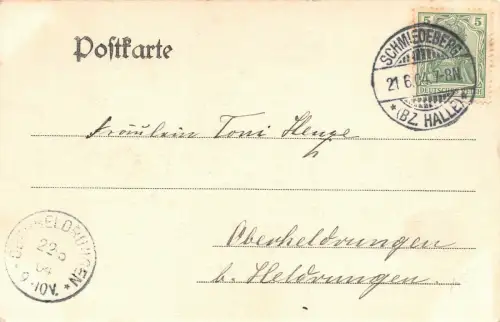 Postkarte
5
DEUTSCHES
SCHMIEDEBERG
21.6.04. 7-8N
* (BZ. HALLE) *
Fräulein Toni Henze
Oberheldrungen
b. Heldrungen.
OBERHELDRUNGEN
22.6
04
9-10V.